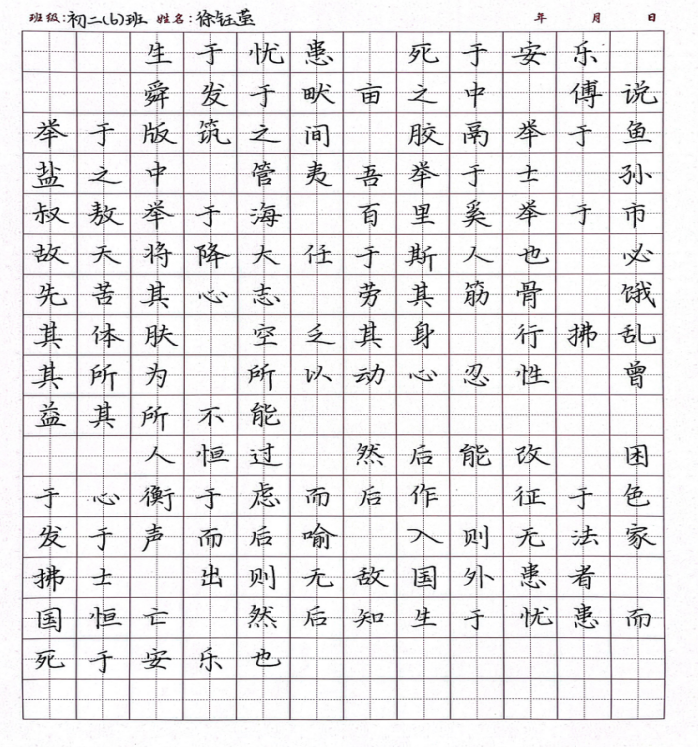 班级:初二(6)班 姓名:徐钰莹 年 月 日
生于忧患 死于安乐
舜发于畎亩之中 傅说
举于版筑之间 胶鬲举于鱼
盐之中 管夷吾举于士 孙
叔敖举于海 百里奚举于市
故天将降大任于斯人也 必
先苦其心志 劳其筋骨 饿
其体肤 空乏其身 行拂乱
其所为 所以动心忍性 曾
益其所不能
人恒过 然后能改 困
于心衡于虑而后作 征于色
发于声而后喻 入则无法家
拂士 出则无敌国外患者
国恒亡 然后知生于忧患而
死于安乐也